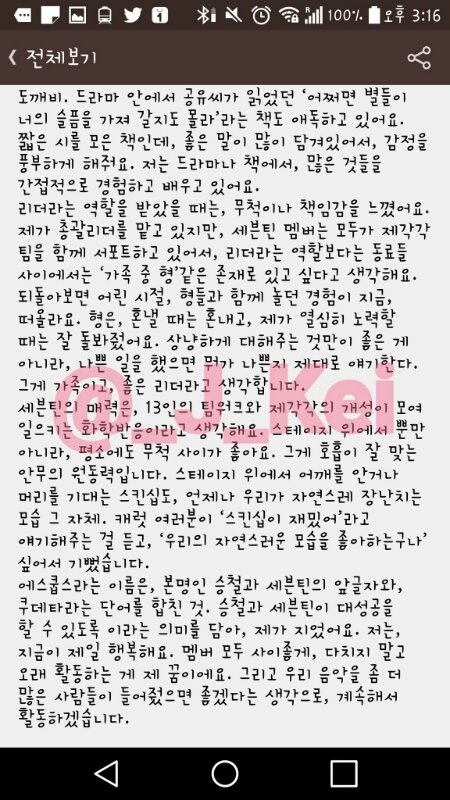 1 100% 오후 3:16
전체보기
도깨비. 드라마 안에서 공유씨가 읽었던 '어쩌면 별들이
너의 슬픔을 가져 갈지도 몰라'라는 책도 애독하고 있어요.
짧은 시를 모은 책인데, 좋은 말이 많이 담겨있어서, 감정을
풍부하게 해줘요. 저는 드라마나 책에서, 많은 것들을
간접적으로 경험하고 배우고 있어요.
리더라는 역할을 받았을 때는, 무척이나 책임감을 느꼈어요.
제가 총괄리더를 맡고 있지만, 세븐틴 멤버는 모두가 제각각
팀을 함께 서포트하고 있어서, 리더라는 역할보다는 동료들
사이에서는 '가족 중 형'같은 존재로 있고 싶다고 생각해요.
되돌아보면 어린 시절, 형들과 함께 놀던 경험이 지금,
떠올라요. 형은, 혼낼 때는 혼내고, 제가 열심히 노력할
때는 잘 돌봐줬어요. 상냥하게 대해주는 것만이 좋은 게
아니라, 나쁜 일을 했으면 뭐가 나쁜지 제대로 얘기한다.
그게 가족이고, 좋은 리더라고 생각합니다.
세븐틴의 매력은, 13인의 팀워크와 제각각의 개성이 모여
일으키는 화학반응이라고 생각해요. 스테이지 위에서 뿐만
아니라, 평소에도 무척 사이가 좋아요. 그게 호흡이 잘 맞는
안무의 원동력입니다. 스테이지 위에서 어깨를 안거나
머리를 기대는 스킨십도, 언제나 우리가 자연스레 장난치는
모습 그 자체. 캐럿 여러분이 '스킨십이 재밌어'라고
얘기해주는 걸 듣고, '우리의 자연스러운 모습을 좋아하는구나'
싶어서 기뻤습니다.
에스쿱스라는 이름은, 본명인 승철과 세븐틴의 앞글자와,
쿠데타라는 단어를 합친 것. 승철과 세븐틴이 대성공을
할 수 있도록 이라는 의미를 담아, 제가 지었어요. 저는,
지금이 제일 행복해요. 멤버 모두 사이좋게, 다치지 말고
오래 활동하는 게 제 꿈이에요. 그리고 우리 음악을 좀 더
많은 사람들이 들어줬으면 좋겠다는 생각으로, 계속해서
활동하겠습니다.
@_J_Kei